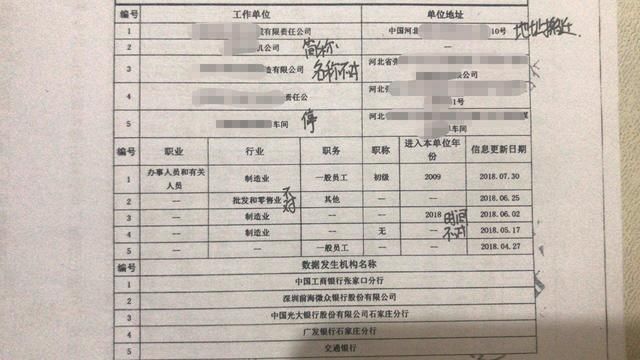 编号 工作单位 单位地址
1 有限责任公司 中国河北 10号 地址搬迁
2 机公司 简称 —
3 造有限公司 名称不对 河北省张 公司
4 责任公 河北省张 1号
5 车间 停 河北 车间
编号 职业 行业 职务 职称 进入本单位年份 信息更新日期
1 办事人员和有关人员 制造业 一般员工 初级 2009 2018.07.30
2 -- 批发和零售业 不对 其他 -- -- 2018.06.25
3 -- 制造业 -- -- 2018 时间不对 2018.06.02
4 -- 制造业 -- 无 -- 2018.05.17
5 -- -- 一般员工 -- -- 2018.04.27
编号 数据发生机构名称
1 中国工商银行张家口分行
2 深圳前海微众银行股份有限公司
3 中国光大银行股份有限公司石家庄分行
4 广发银行石家庄分行
5 交通银行